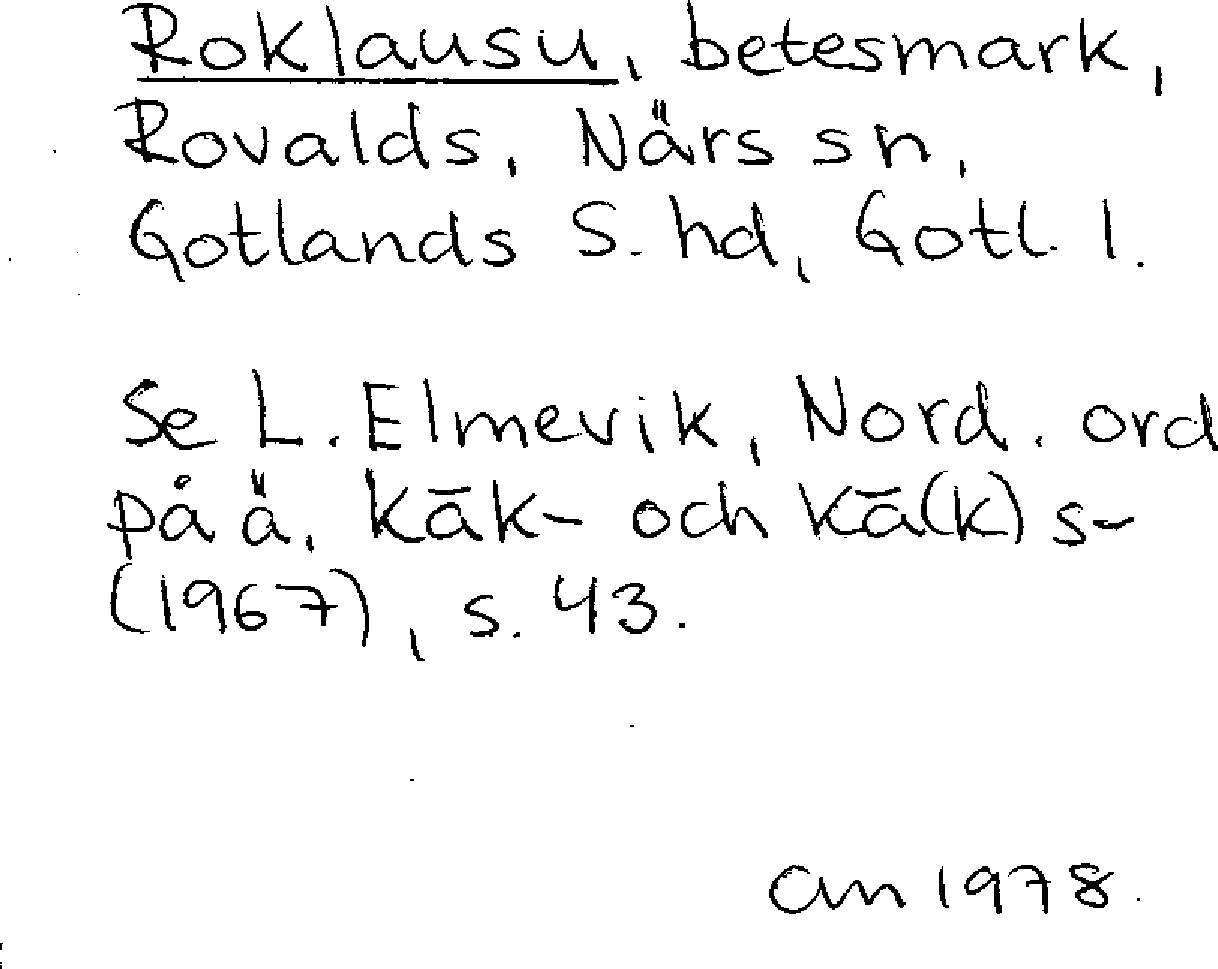 Roklausu, betesmark,
Rovalds, Närs sn,
Gotlands S. hd, Gotl. l.
Se L. Elmevik, Nord. ord
på ä, kāk- och kā(k)s-
(1967), s. 43.
am 1978.